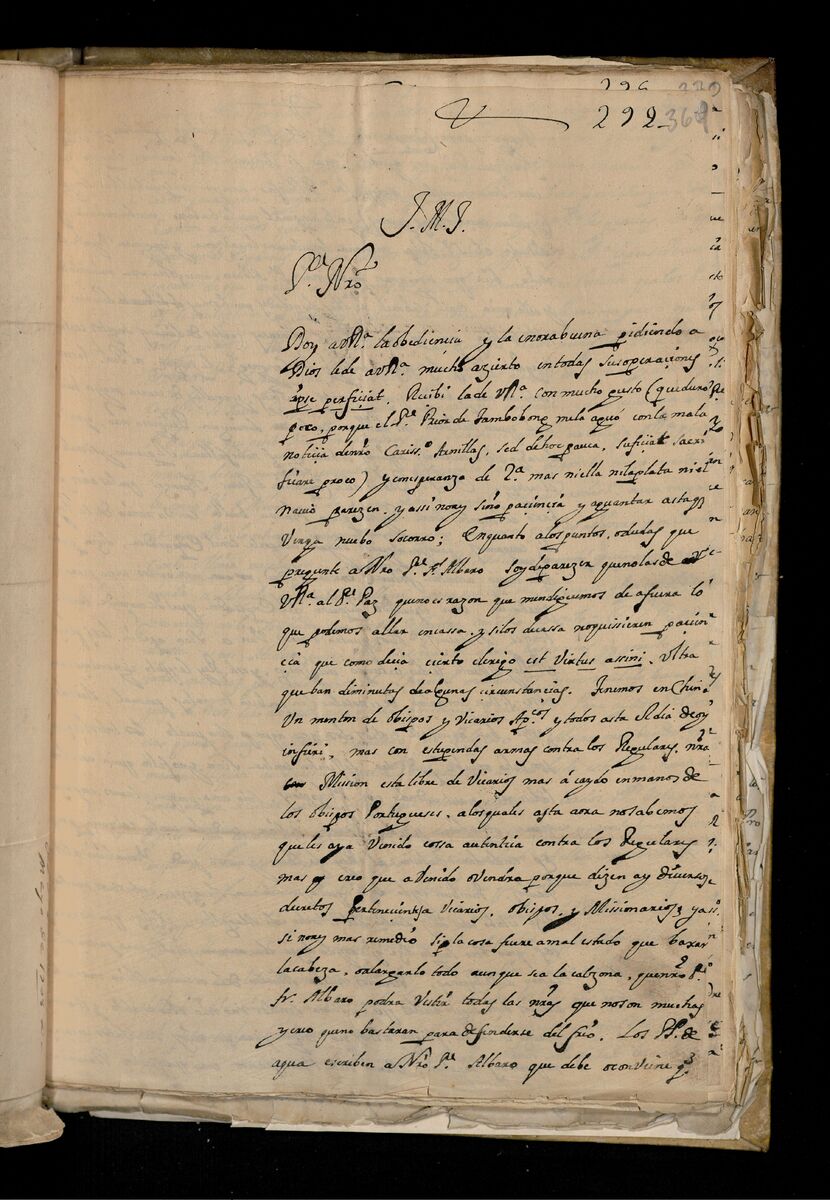 296 229
292 369
J. M. J.
P.e Nro
Doy a V.Ra. la obediencia y la enorabuena pidiendo a
Dios le de a V.Ra. mucho azierto en todas sus operaçiones
ipse perfiçiat. Reçibi la de V.Ra. con mucho gusto (que duro
poco, porque el P.e Prior de Tambobong me la aguó con la mala
notiçia de nro Cariss.o Arnillas, sed de hoc pauca, sufiçiat sacri
ficare pro eo) y con esperanza de 2.a mas ni ella ni la plata ni el
navio parezen, y assi no ay sino paçiençia y aguantar asta q
venga nuebo socorro; Enquanto a los puntos, o dudas que
pregunte a Nro P.e Fr. Albaro soy de parezer que no las de
V.Ra. al P.e Paz que no es razon que mendiguemos de afuera lo
que podemos allar en cassa, y si los de cassa no quissieren paçien
çia que como deçia çierto clerigo est virtus assini. Ultra
que ban diminutas de algunas çircunstançias. Tenemos en China
un monton de obispos y vicarios Ap.cos y todos asta el dia de oy
in fieri, mas con estupendas armas contra los Regulares, nra
Mission esta libre de Vicarios mas á caydo en manos de
los obispos Portugueses, a los quales asta aora no sabemos
que les aya venido cossa autentica contra los Regulares
mas creo que a venido o vendra porque dizen ay diversos
decretos perteneçientes a Vicarios, obispos, y Missionarios; y a
si no ay mas remedio si la cosa fuere a mal estado que baxar
la cabeza, o alargarlo todo aunque sea la calzona, que nro P.e
fr. Albaro podra vestir todas las nras que no son muchas
y creo que no bastaran para defenderse del frio. Los PP. de
agua escriben a Nro P.e Albaro que debe o conviene q